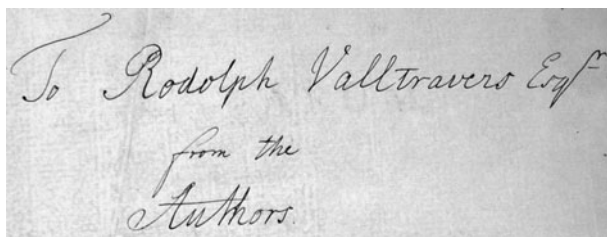 To Rodolph Valltravers Esqr
from the
Authors.